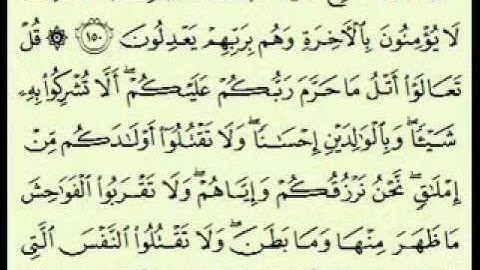 لَا يُؤْمِنُونَ بِٱلْأَخِرَةِ وَهُم بِرَبِّهِمْ يَعْدِلُونَ ١٥٠ ۞ قُلْ
تَعَالَوْا۟ أَتْلُ مَا حَرَّمَ رَبُّكُمْ عَلَيْكُمْ ۖ أَلَّا تُشْرِكُوا۟ بِهِۦ
شَيْـًٔا ۖ وَبِٱلْوَٰلِدَيْنِ إِحْسَـٰنًا ۖ وَلَا تَقْتُلُوٓا۟ أَوْلَـٰدَكُم مِّنْ
إِمْلَـٰقٍ ۖ نَّحْنُ نَرْزُقُكُمْ وَإِيَّاهُمْ ۖ وَلَا تَقْرَبُوا۟ ٱلْفَوَٰحِشَ
مَا ظَهَرَ مِنْهَا وَمَا بَطَنَ ۖ وَلَا تَقْتُلُوا۟ ٱلنَّفْسَ ٱلَّتِى